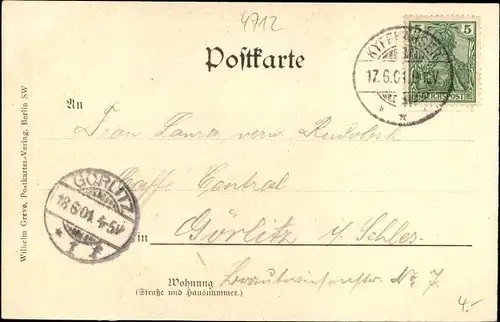 4712
Postkarte
5 5
REICHSPOST
KYFFHÄUSER
17.6.01.
An
Frau Laura verw. Rudolph
Caffé Central
GÖRLITZ
18.6.01. 4-5N.
1 f
in Görlitz i/ Schles.
Wohnung No. 7.
(Straße und Hausnummer.)
4.-
Wilhelm Greve, Postkarten-Verlag, Berlin SW